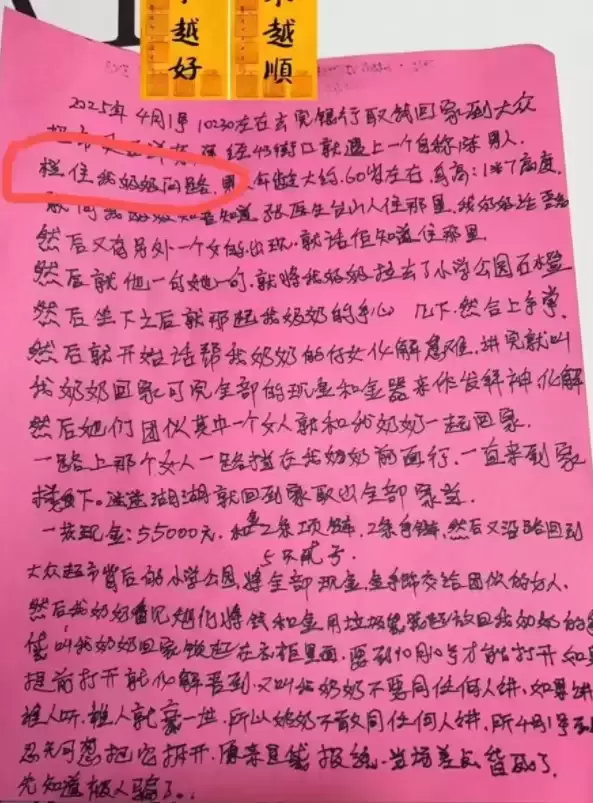 越好
越順
2025年4月1号10:30左右去完银行取钱回家到大众
超市 经43街口就遇上一个自称 男人
栏住我奶奶问路, 男 年龄大约.60岁左右 身高:1米7高度
就问我奶奶知否知道 张医生台山人住那里. 我奶奶话
然后又有另处一个女的出现. 就话但知道住那里
然后就他一句她一句.就将我奶奶拉去了小学公园石
然后坐下之后就那起我奶奶的手心 几下.然合上手掌.
然后就开始话帮我奶奶的仔女化解 难. 讲完就叫
我奶奶回家可完全部的现金和金器来作 神化解
然后她们团伙其中一个女人就和我奶奶一起回家
一路上那个女人一路挡在我奶奶前面行.一直来到家
楼下。迷迷湖湖就回到家取出全部家
一共现金:55000元. 和 2条项链, 2条手链,然后又沿路回到
5只戒子
大众超市背后的小学公园,将全部现金 交给团伙的女人
然后我奶奶看见她们将钱和金用垃圾 放回我奶奶的
叫我奶奶回家锁起在衣柜里面.要到10月10号才能打开如果
提前打开就化解 到.又叫我奶奶不要同任何人讲,如果讲
谁人听, 谁人就衰一世.所以奶奶不敢同任何人讲.所4月1号
忍 想把它拆开. 原来是 报纸.当场差点 死了.
先知道 人骗了.